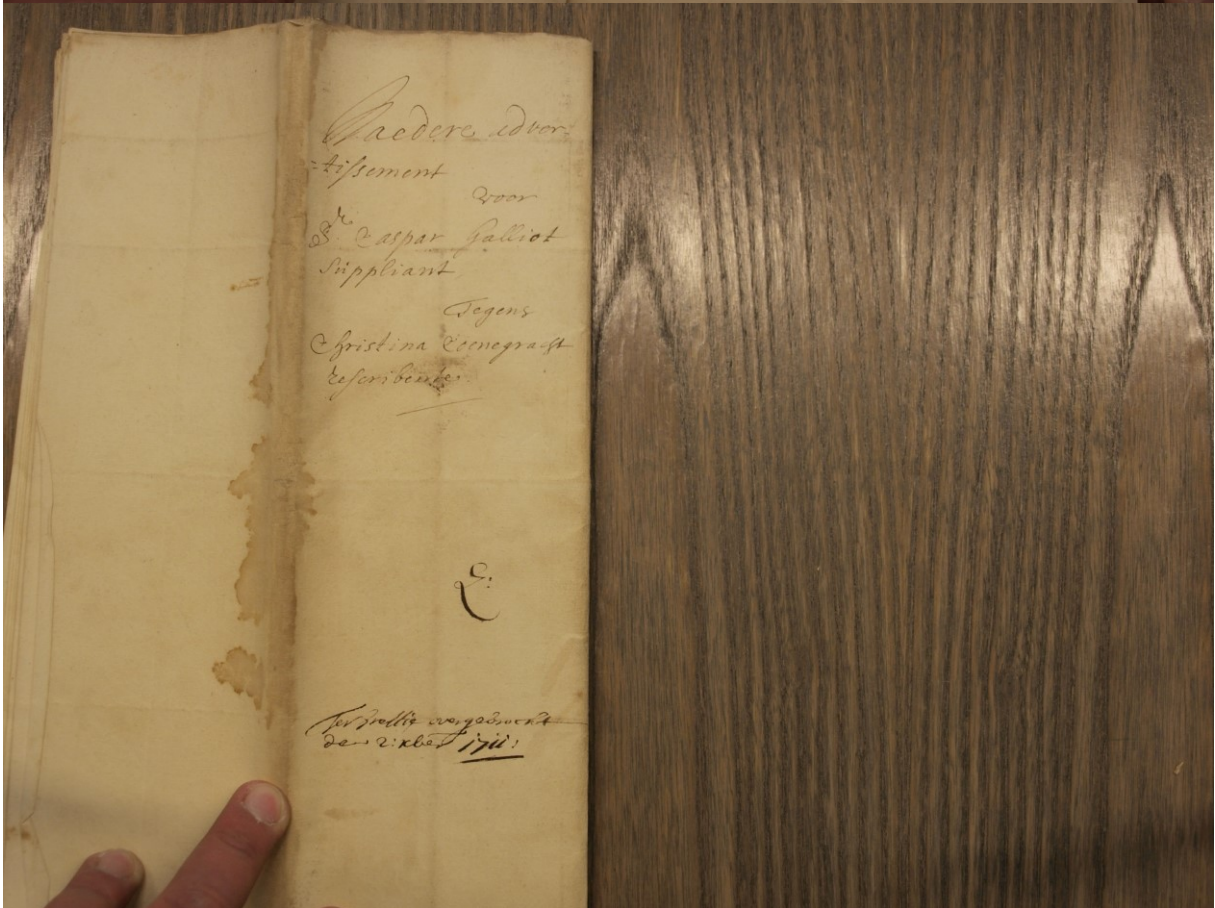 Naedere adver-
=tissement
voor
Sr. Caspar Galliot
Suppliant
Tegens
Christina Coenegracht
rescribente
L:
Ter rollie overgebrocht
den 2: xber 1711: